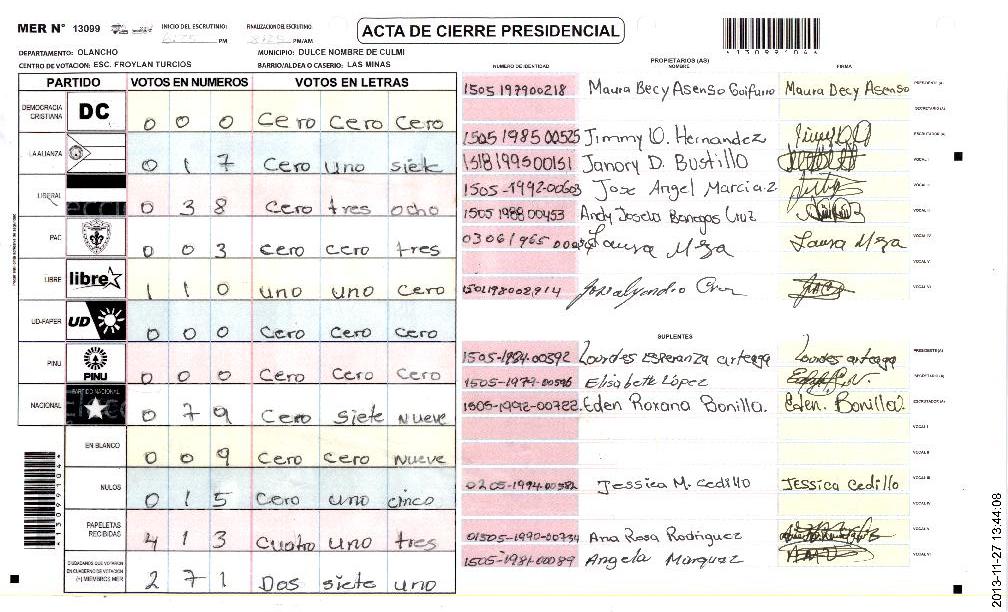 MER Nº 13099 INICIO DEL ESCRUTINIO: PM FINALIZACION DEL ESCRUTINIO: PM/AM
ACTA DE CIERRE PRESIDENCIAL
*13099104*
DEPARTAMENTO: OLANCHO MUNICIPIO: DULCE NOMBRE DE CULMI
CENTRO DE VOTACION: ESC. FROYLAN TURCIOS BARRIO/ALDEA O CASERIO: LAS MINAS
PARTIDO VOTOS EN NUMEROS VOTOS EN LETRAS
DEMOCRACIA CRISTIANA DC 0 0 0 Cero Cero Cero
LA ALIANZA 0 1 7 Cero uno siete
LIBERAL 0 3 8 Cero tres ocho
PAC 0 0 3 Cero cero tres
LIBRE libre 1 1 0 uno uno cero
UD-FAPER UD 0 0 0 Cero Cero cero
PINU PINU 0 0 0 Cero Cero Cero
NACIONAL PARTIDO NACIONAL 0 7 9 Cero siete nueve
EN BLANCO 0 0 9 Cero Cero nueve
NULOS 0 1 5 Cero uno cinco
PAPELETAS RECIBIDAS 4 1 3 Cuatro uno tres
CIUDADANOS QUE VOTARON EN CUADERNO DE VOTACION (+) MIEMBROS MER 2 7 1 Dos siete uno
PROPIETARIOS (AS)
NUMERO DE IDENTIDAD NOMBRE FIRMA
1505 197900218 Maura Becy Asenso Maura Decy Asenso PRESIDENTE (A)
SECRETARIO (A)
1505 1985 00525 Jimmy O. Hernandez ESCRUTADOR (A)
1518 1995 00151 Janory D. Bustillo VOCAL I
1505-1992-00603 Jose Angel VOCAL II
1505 1988 00453 Andy Joselo Banegas Cruz VOCAL III
Laura Meza Laura Meza VOCAL IV
VOCAL V
VOCAL VI
SUPLENTES
1505-1984-00592 Lourdes Esperanza arteaga Lourdes arteaga PRESIDENTE (A)
1505-1979-00596 Elisabeth López SECRETARIO (A)
1505-1992-00722 Eden Roxana Bonilla. Eden. Bonilla ESCRUTADOR (A)
VOCAL I
VOCAL II
0205-1994-00582 Jessica M. Cedillo Jessica Cedillo VOCAL III
VOCAL IV
01505-1990-00734 Ana Rosa Rodriguez VOCAL V
1505-1981-00089 Angela Marquez VOCAL VI
*13099104*
2013-11-27 13:44:08